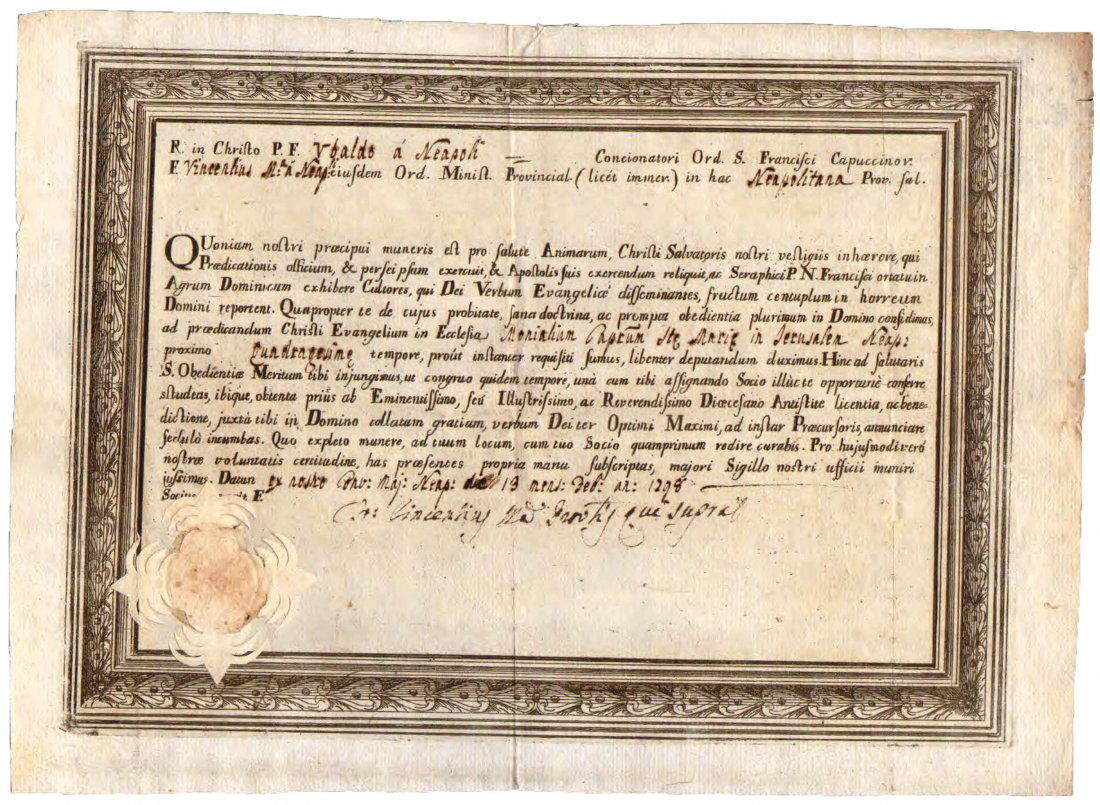 R. in Christo P. F. Vbaldo á Neapoli — Concionatori Ord. S. Francisci Capuccinor.
F. Vincentius M.ª á Neap: eiusdem Ord. Minist. Provincial. (licèt immer.) in hac Neapolitana Prov. sal.
QUoniam nostri præcipui muneris est pro salute Animarum, Christi Salvatoris nostri vestigiis inhærere, qui
Prædicationis officium, & per seipsum exercuit, & Apostolis suis exercendum reliquit, ac Seraphici P. N. Francisci ortatu in
Agrum Dominicum exhibere Cultores, qui Dei Verbum Evangelicè disseminantes, fructum centuplum in horreum
Domini reportent. Quapropter te de cujus probitate, sana doctrina, ac prompta obedientia plurimum in Domino confidimus,
ad prædicandum Christi Evangelium in Ecclesia Monialium Stę Marię in Jerusalem Neap:
proximo Quadragesimę tempore, proùt instanter requisiti sumus, libenter deputandum duximus. Hinc ad salutaris
S. Obedientiæ Meritum tibi injungimus, ut congruo quidem tempore, unà cum tibi assignando Socio illùc te opportunè conferre
studeas, ibique, obtenta priùs ab Eminentissimo, seù Illustrissimo, ac Reverendissimo Diœcesano Antistite licentia, ac bene-
dictione, juxtà tibi in Domino collatam gratiam, verbum Dei ter Optimi Maximi, ad instar Præcursoris, annunciare
sedulò incumbas. Quo expleto munere, ad tuum locum, cum tuo Socio quamprimum redire curabis. Pro hujusmodi verò
nostræ voluntatis certitudine, has præsentes propria manu subscriptas, majori Sigillo nostri ufficii muniri
jussimus. Datun ex nostro Conv: Maj: Neap: 13 mens: Feb: an: 1798
F
Fr: Vincentius Mª Provlis que supra